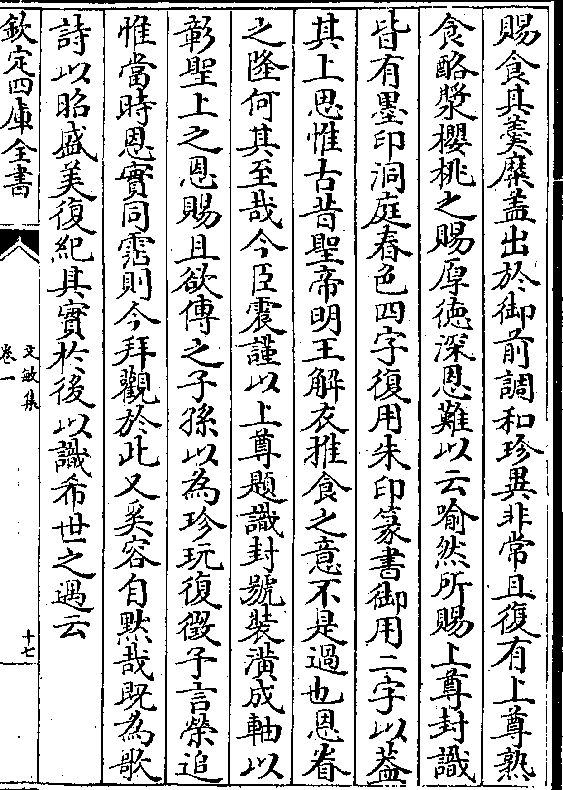 賜食其羮糜葢出於御前調和珍異非常且復有上尊熟
食酪漿櫻桃之賜厚徳深恩難以云喻然所賜上尊封識
皆有墨印洞庭春色四字復用朱印篆書御用二字以葢
其上思惟古昔聖帝明王解衣推食之意不是過也恩眷
之隆何其至哉今臣震謹以上尊題識封號裝潢成軸以
彰聖上之恩賜且欲傳之子孫以為珍玩復徴予言榮追
惟當時恩實同霑則今拜觀於此又奚容自黙哉既為歌
詩以昭盛美復紀其實於後以識希世之遇云
欽定四庫全書
文敏集
卷一
十七